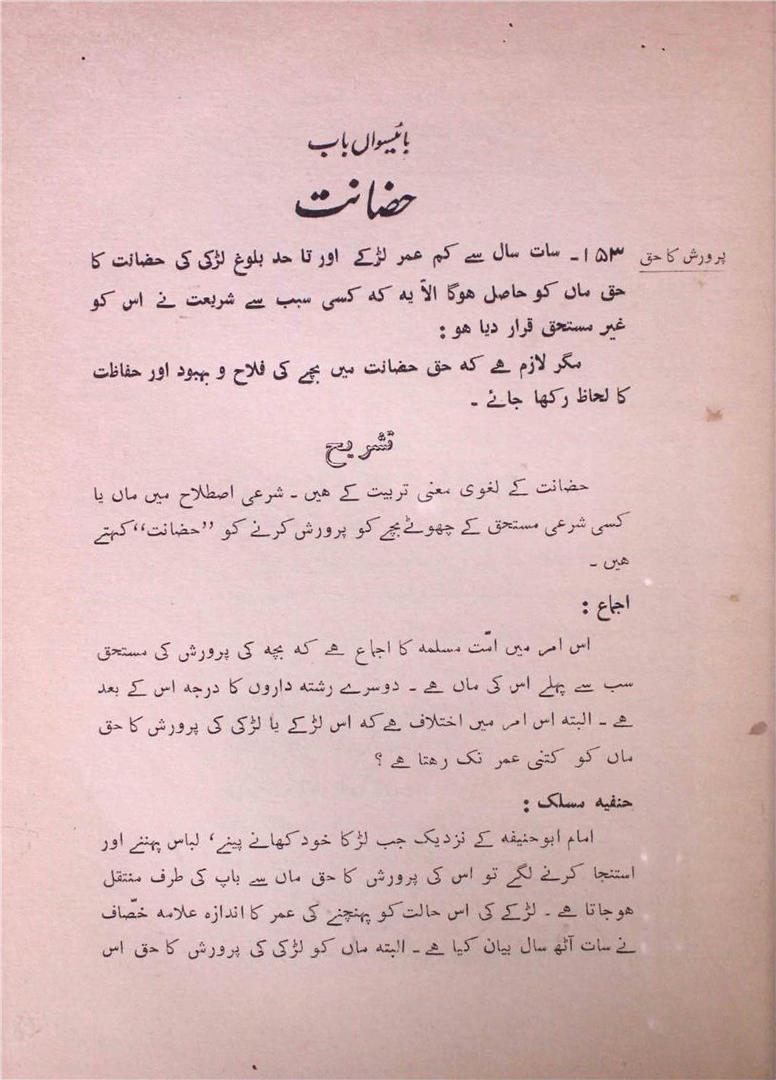 بائیسواں باب
حضانت
پرورش کا حق
۱۵۳۔ سات سال سے کم عمر لڑکے اور تا حد بلوغ لڑکی کی حضانت کا
حق ماں کو حاصل ہوگا الاّ یہ کہ کسی سبب سے شریعت نے اس کو
غیر مستحق قرار دیا ہو :
مگر لازم ہے کہ حق حضانت میں بچے کی فلاح و بہبود اور حفاظت
کا لحاظ رکھا جائے ۔
تشریح
حضانت کے لغوی معنی تربیت کے ہیں ۔ شرعی اصطلاح میں ماں یا
کسی شرعی مستحق کے چھوٹے بچے کو پرورش کرنے کو ’’حضانت‘‘ کہتے
ہیں ۔
اجماع :
اس امر میں امّت مسلمہ کا اجماع ہے کہ بچہ کی پرورش کی مستحق
سب سے پہلے اس کی ماں ہے ۔ دوسرے رشتہ داروں کا درجہ اس کے بعد
ہے ۔ البتہ اس امر میں اختلاف ہے کہ اس لڑکے یا لڑکی کی پرورش کا حق
ماں کو کتنی عمر تک رہتا ہے ؟
حنفیہ مسلک :
امام ابوحنیفہ کے نزدیک جب لڑکا خود کھانے پینے، لباس پہننے اور
استنجا کرنے لگے تو اس کی پرورش کا حق ماں سے باپ کی طرف منتقل
ہوجاتا ہے ۔ لڑکے کی اس حالت کو پہنچنے کی عمر کا اندازہ علامہ خصّاف
نے سات آٹھ سال بیان کیا ہے ۔ البتہ ماں کو لڑکی کی پرورش کا حق اس